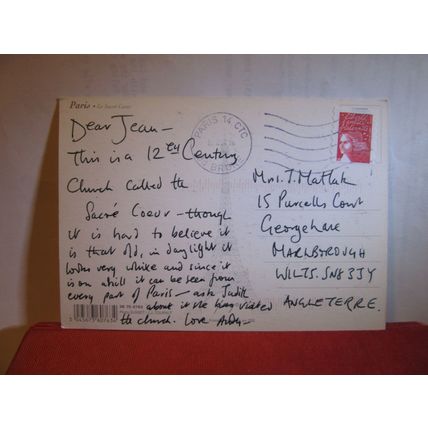 Paris • Le Sacré Coeur
PARIS 14 CTC
Dear Jean –
This is a 12th Century
Church called the
Sacré Coeur – though
it is hard to believe it
is that old, in daylight it
looks very white and since it
is on a hill it can be seen from
every part of Paris – ask Judith
about it she has visited
the church. Love
Mrs. J. Matlak
15 Purcells Court
George Lane
MARLBOROUGH
WILTS. SN8
ANGLETERRE.